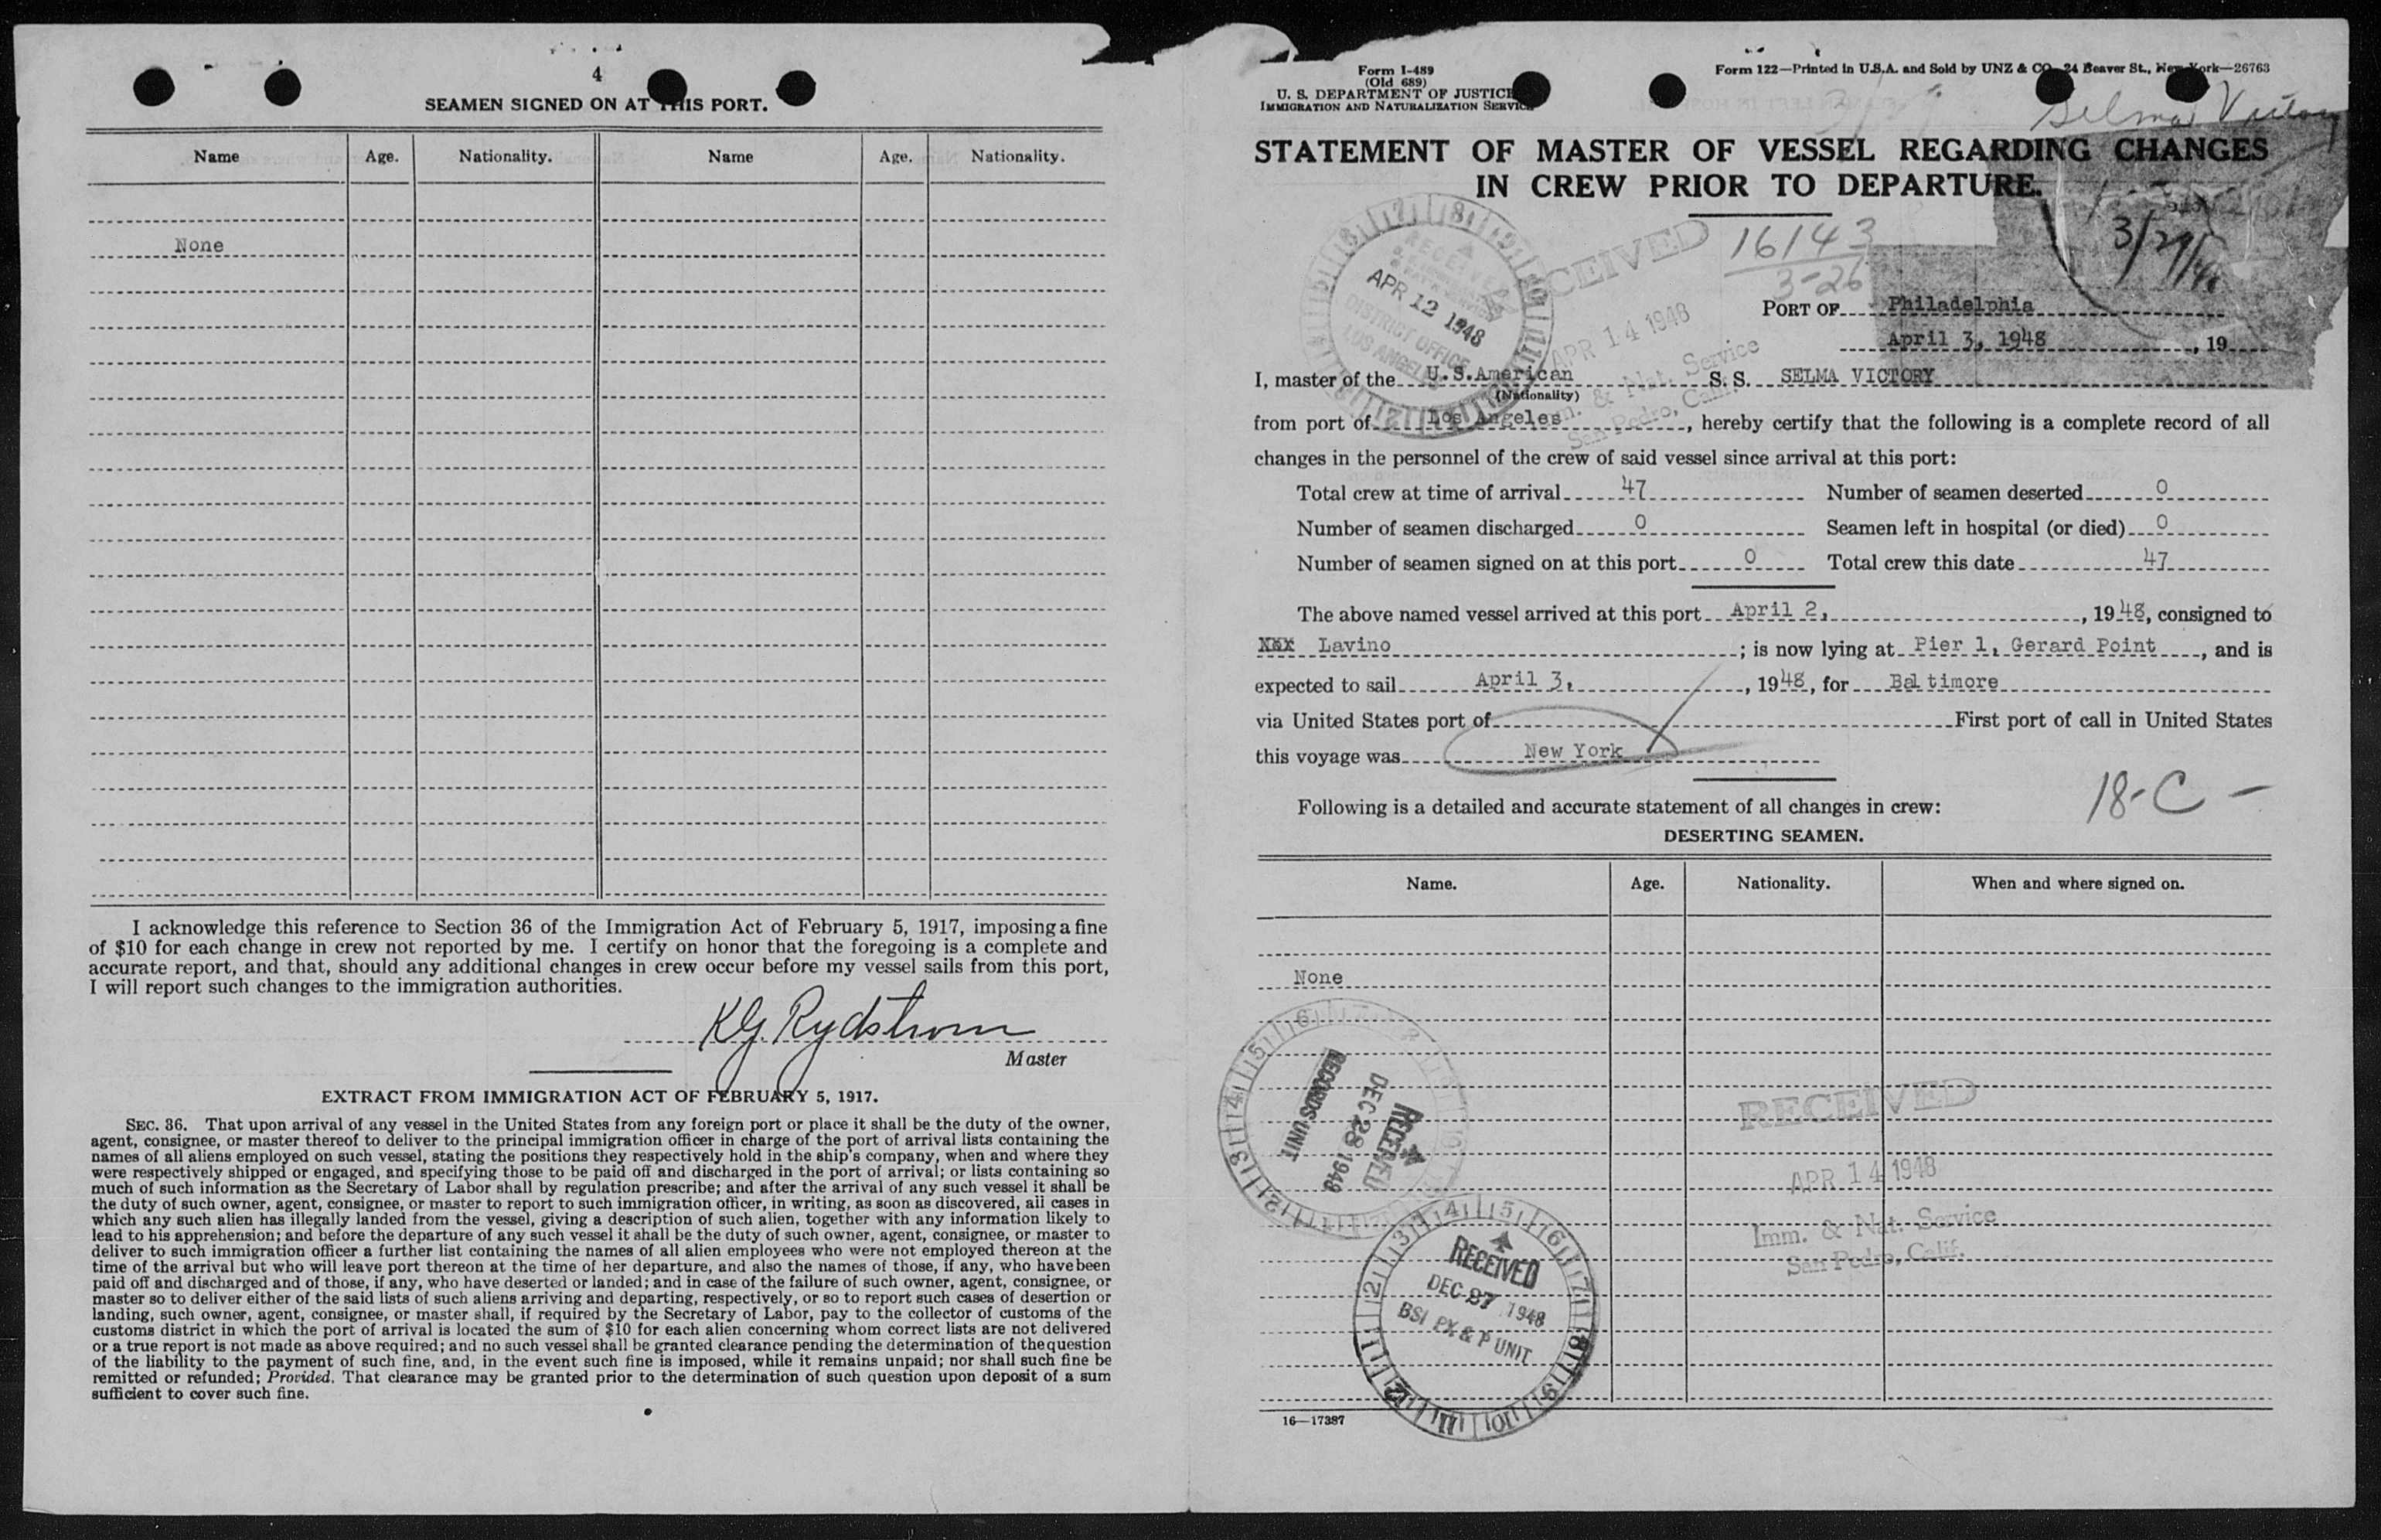 4
SEAMEN SIGNED ON AT THIS PORT.
Name Age. Nationality. Name Age. Nationality.
None
I acknowledge this reference to Section 36 of the Immigration Act of February 5, 1917, imposing a fine
of $10 for each change in crew not reported by me. I certify on honor that the foregoing is a complete and
accurate report, and that, should any additional changes in crew occur before my vessel sails from this port,
I will report such changes to the immigration authorities.
KG. Rydstrom
Master
EXTRACT FROM IMMIGRATION ACT OF FEBRUARY 5, 1917.
SEC. 36. That upon arrival of any vessel in the United States from any foreign port or place it shall be the duty of the owner,
agent, consignee, or master thereof to deliver to the principal immigration officer in charge of the port of arrival lists containing the
names of all aliens employed on such vessel, stating the positions they respectively hold in the ship's company, when and where they
were respectively shipped or engaged, and specifying those to be paid off and discharged in the port of arrival; or lists containing so
much of such information as the Secretary of Labor shall by regulation prescribe; and after the arrival of any such vessel it shall be
the duty of such owner, agent, consignee, or master to report to such immigration officer, in writing, as soon as discovered, all cases in
which any such alien has illegally landed from the vessel, giving a description of such alien, together with any information likely to
lead to his apprehension; and before the departure of any such vessel it shall be the duty of such owner, agent, consignee, or master to
deliver to such immigration officer a further list containing the names of all alien employees who were not employed thereon at the
time of the arrival but who will leave port thereon at the time of her departure, and also the names of those, if any, who have been
paid off and discharged and of those, if any, who have deserted or landed; and in case of the failure of such owner, agent, consignee, or
master so to deliver either of the said lists of such aliens arriving and departing, respectively, or so to report such cases of desertion or
landing, such owner, agent, consignee, or master shall, if required by the Secretary of Labor, pay to the collector of customs of the
customs district in which the port of arrival is located the sum of $10 for each alien concerning whom correct lists are not delivered
or a true report is not made as above required; and no such vessel shall be granted clearance pending the determination of the question
of the liability to the payment of such fine, and, in the event such fine is imposed, while it remains unpaid; nor shall such fine be
remitted or refunded; Provided, That clearance may be granted prior to the determination of such question upon deposit of a sum
sufficient to cover such fine.
Form I-489
(Old 689)
U. S. DEPARTMENT OF JUSTICE
IMMIGRATION AND NATURALIZATION SERVICE
Form 122—Printed in U.S.A. and Sold by UNZ & CO. 24 Beaver St., New York—26763
Selma Victory
STATEMENT OF MASTER OF VESSEL REGARDING CHANGES
IN CREW PRIOR TO DEPARTURE.
16143
3-26
3/29/48
RECEIVED
APR 12 1948
DISTRICT OFFICE
LOS ANGELES
RECEIVED
APR 14 1948
Imm. & Nat. Service
San Pedro, Calif.
PORT OF Philadelphia
April 3, 1948, 19
I, master of the U.S.American S. S. SELMA VICTORY
(Nationality)
from port of Los Angeles, hereby certify that the following is a complete record of all
changes in the personnel of the crew of said vessel since arrival at this port:
Total crew at time of arrival 47 Number of seamen deserted 0
Number of seamen discharged 0 Seamen left in hospital (or died) 0
Number of seamen signed on at this port 0 Total crew this date 47
The above named vessel arrived at this port April 2, , 1948, consigned to
XXX Lavino ; is now lying at Pier 1, Gerard Point, and is
expected to sail April 3, , 1948, for Baltimore
via United States port of First port of call in United States
this voyage was New York
18-C -
Following is a detailed and accurate statement of all changes in crew:
DESERTING SEAMEN.
Name. Age. Nationality. When and where signed on.
None
RECEIVED
DEC 28 1948
RECORDS UNIT
RECEIVED
APR 14 1948
Imm. & Nat. Service
San Pedro, Calif.
RECEIVED
DEC 27 1948
BSI PX & P UNIT
16—17387